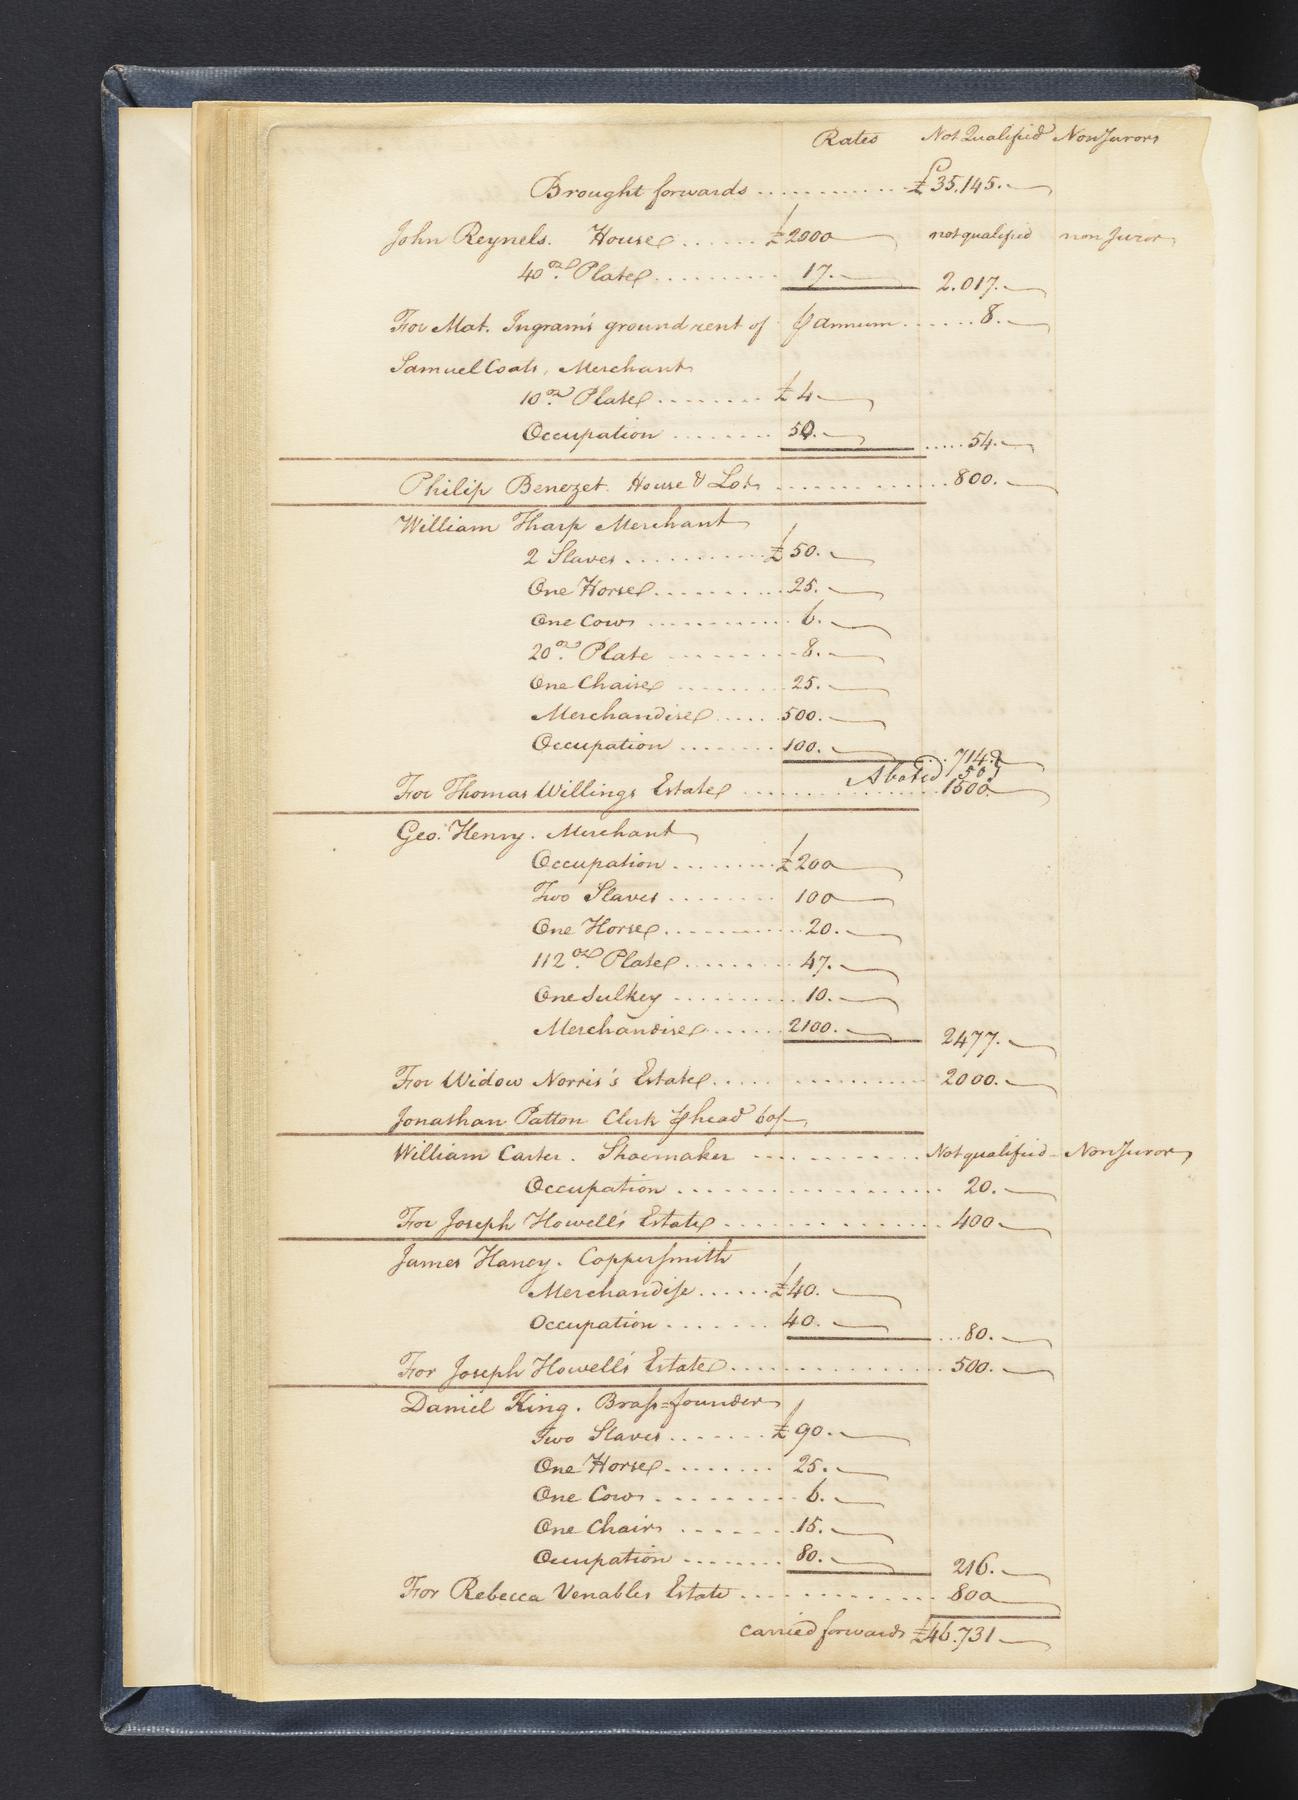 Rates Not Qualified Non Jurors
Brought forwards ............ £35.145.
John Reynels. House ...... £2000 not qualified non Juror
40 oz. Plate ......... 17. 2.017.
For Mat. Ingram's ground rent of ⅌ annum ...... 8.
Samuel Coats, Merchant
10 oz. Plate ........ £4.
Occupation ........ 50. ..... 54.
Philip Benezet. House & Lot ............ 800.
William Tharp Merchant
2 Slaves ......... £50.
One Horse ......... 25.
One Cow ......... 6.
20 oz. Plate ........ 8.
One Chaise ........ 25.
Merchandise ..... 500.
Occupation ....... 100. .. 714.
Abated 50
For Thomas Willings Estate ............ 1500
Geo. Henry. Merchant
Occupation ........ £200
Two Slaves ........ 100
One Horse ......... 20.
112 oz. Plate ....... 47.
One Sulkey ........ 10.
Merchandise ...... 2100. 2477.
For Widow Norris's Estate ............ 2000.
Jonathan Patton Clerk ⅌ head 60/
William Carter. Shoemaker ............ Not qualified - Non Juror
Occupation ............ 20.
For Joseph Howell's Estate ............ 400
James Haney. Coppersmith
Merchandise ...... £40.
Occupation ....... 40. ... 80.
For Joseph Howell's Estate ............ 500.
Daniel King. Brass=founder
Two Slaves ....... £90.
One Horse ........ 25.
One Cow ......... 6.
One Chair ........ 15.
Occupation ....... 80. 216.
For Rebecca Venables Estate ............ 800
carried forwards £46.731